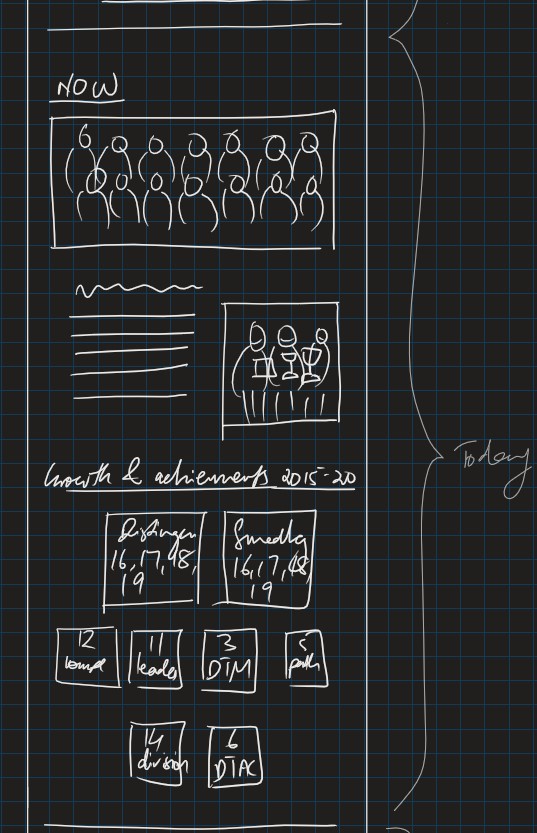 NOW
Growth & achievements 2015-20
16, 17, 18,
19
Smedley
16, 17, 18,
19
12
11
leader
3
DTM
5
path
14
division
6
DTAC
Today